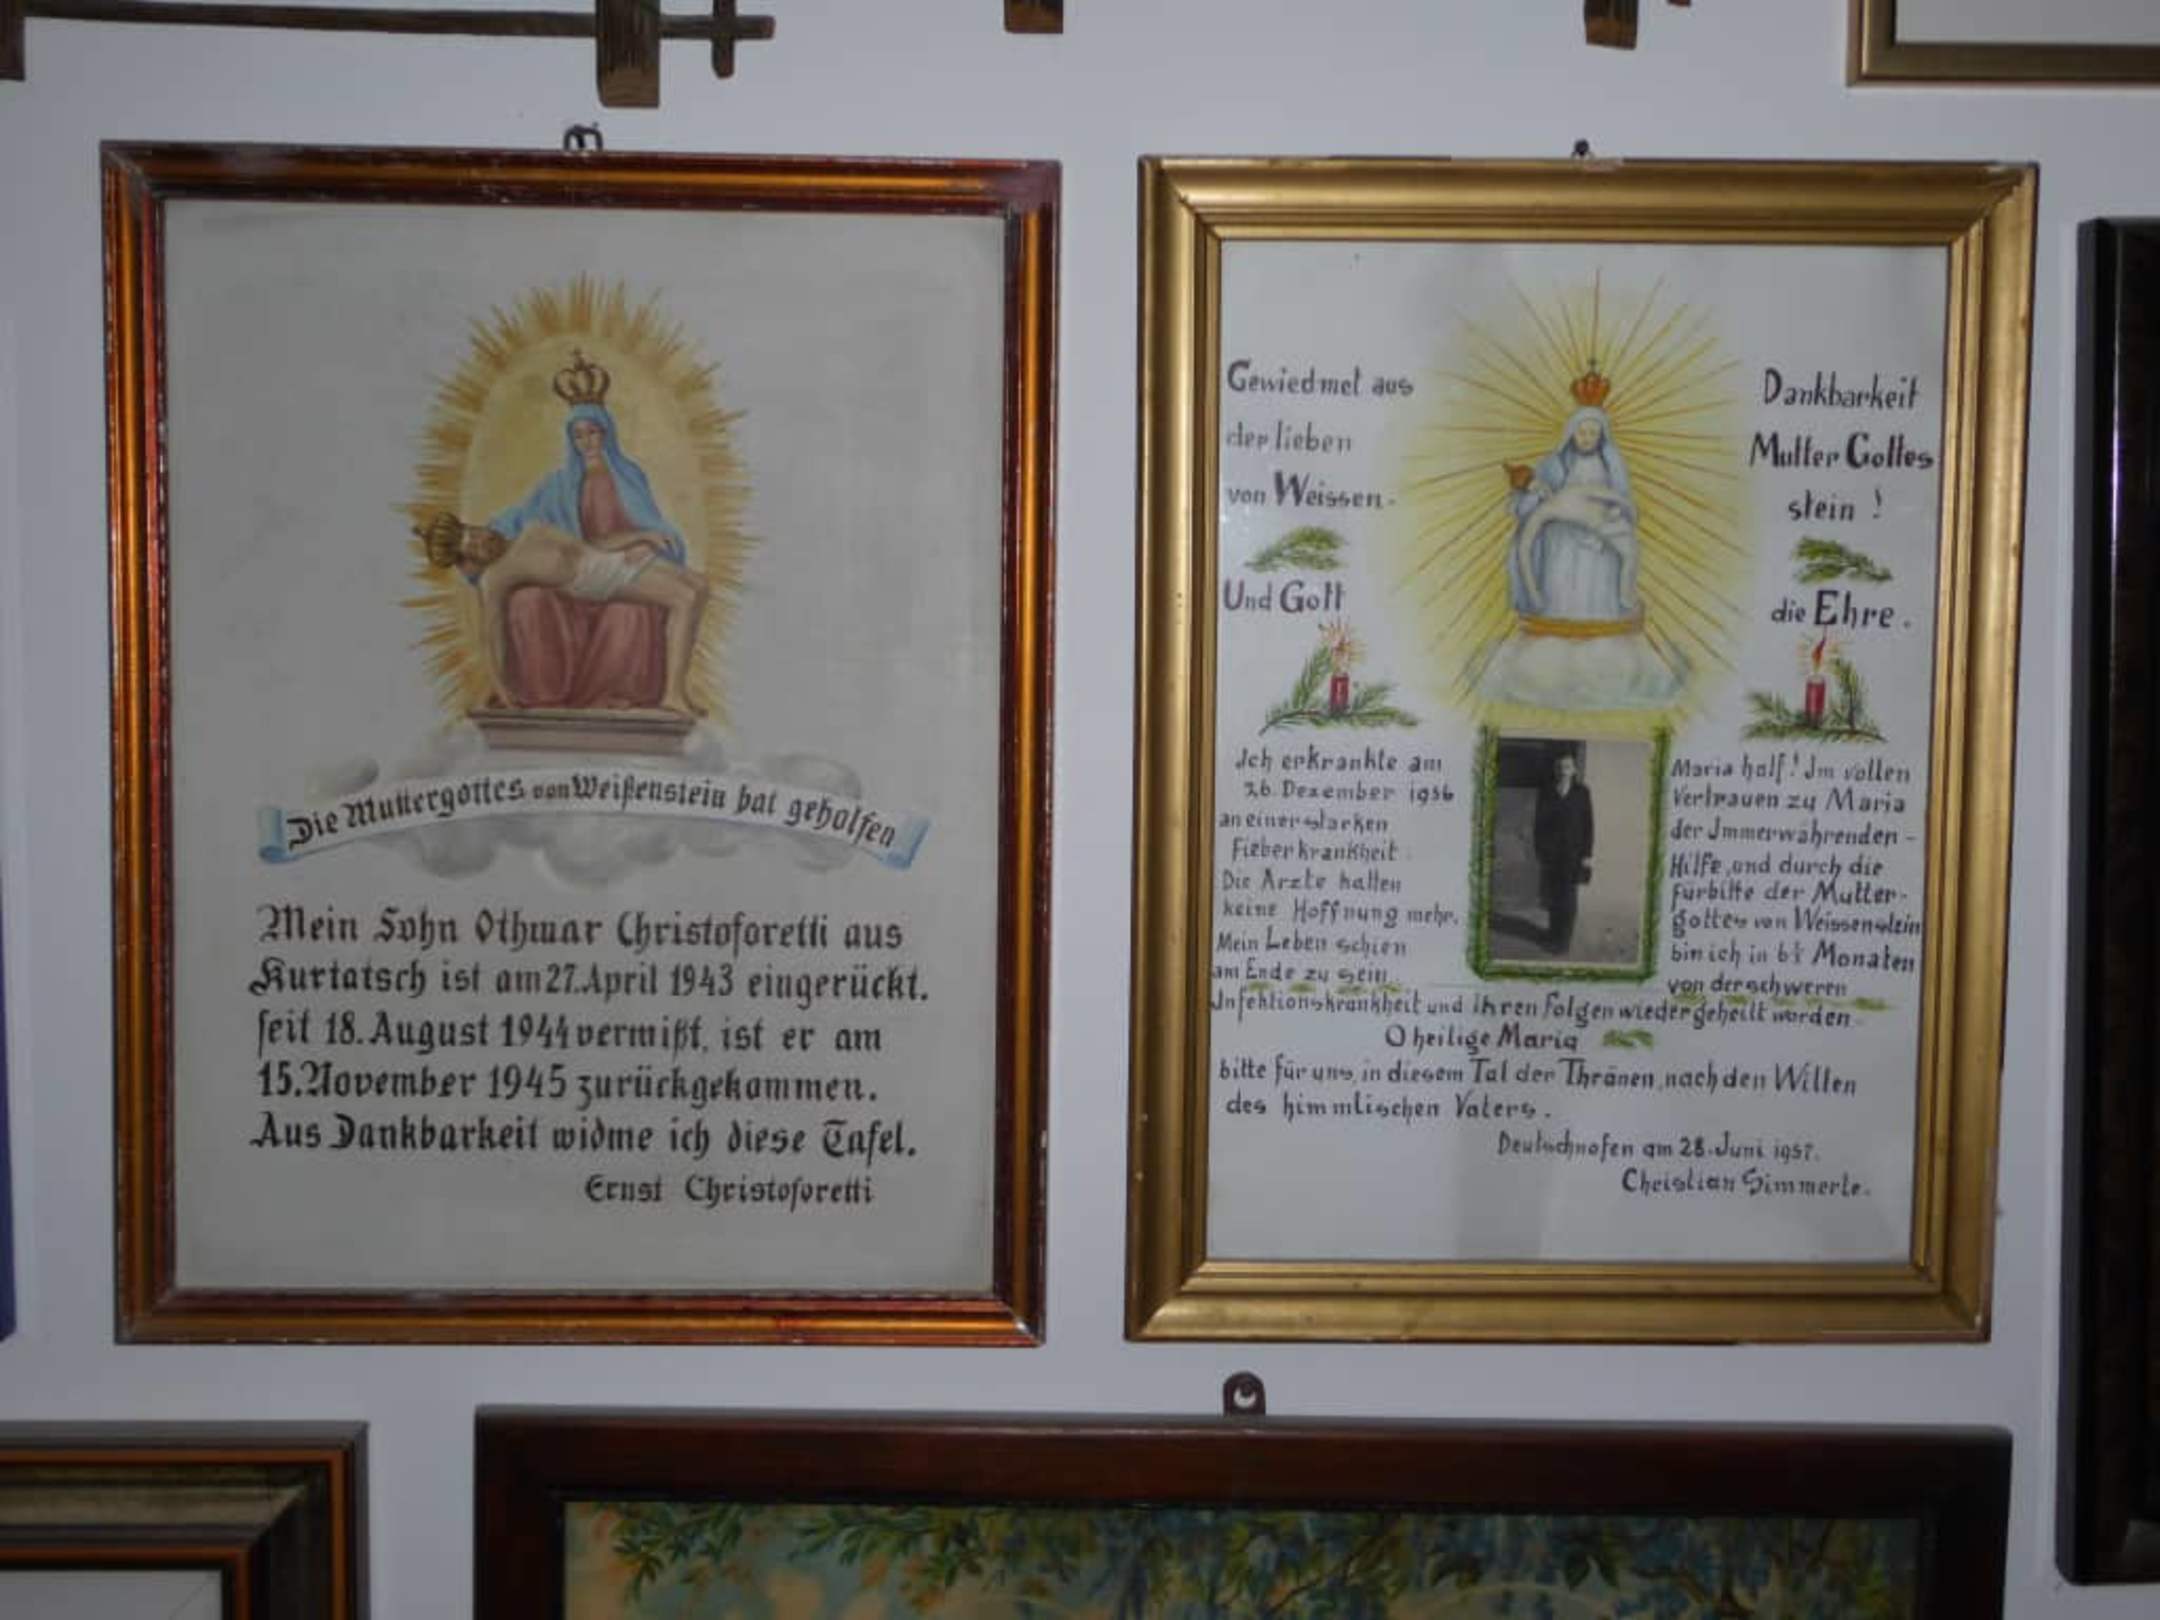 Die Muttergottes von Weißenstein hat geholfen
Mein Sohn Othmar Christoforetti aus
Kurtatsch ist am 27. April 1943 eingerückt.
seit 18. August 1944 vermißt, ist er am
15. November 1945 zurückgekommen.
Aus Dankbarkeit widme ich diese Tafel.
Ernst Christoforetti
Gewiedmet aus Dankbarkeit
der lieben Mutter Gottes
von Weissen- stein !
Und Gott die Ehre.
Ich erkrankte am
26. Dezember 1956
an einer starken
Fieberkrankheit
Die Arzte hatten
keine Hoffnung mehr.
Mein Leben schien
am Ende zu sein.
Maria half! Im vollen
Vertrauen zu Maria
der Immerwährenden-
Hilfe, und durch die
Fürbitte der Mutter-
gottes von Weissenstein
bin ich in 6½ Monaten
von der schweren
Infektionskrankheit und ihren Folgen wieder geheilt worden.
O heilige Maria
bitte für uns, in diesem Tal der Thränen, nach den Willen
des himmlischen Vaters.
Deutschnofen am 28. Juni 1957.
Christian Simmerle.